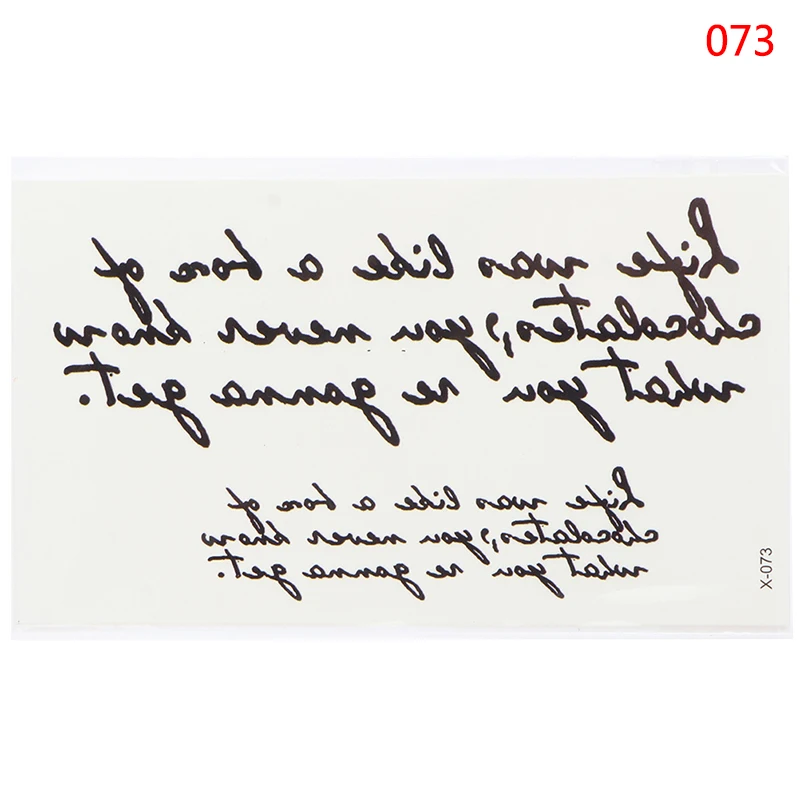 073
Life was like a box of
chocolates, you never know
what you re gonna get.
Life was like a box of
chocolates, you never know
what you re gonna get.
X-073